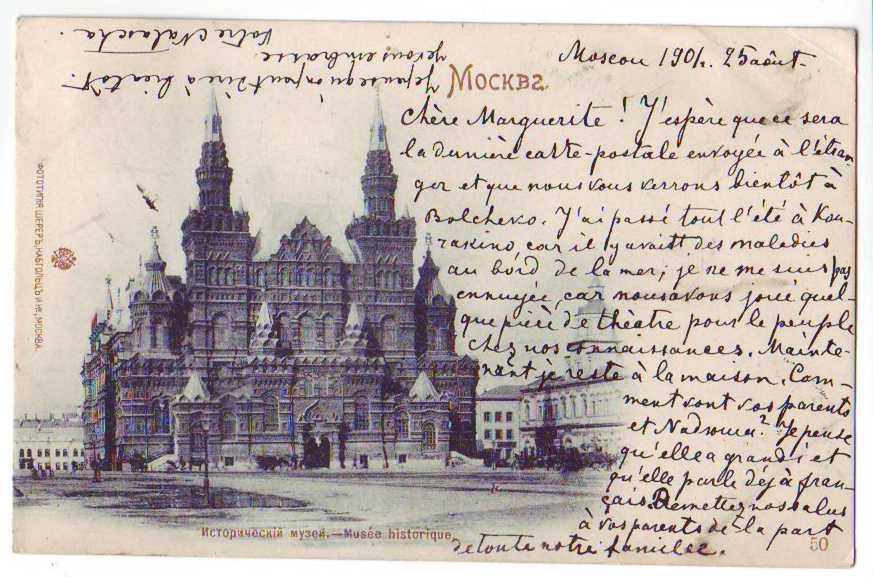 Москва.
Moscou 1901. 25 août.
Chère Marguerite! J'espère que ce sera
la dernière carte-postale envoyée à l'étran-
ger et que nous vous verrons bientôt à
Bolchevo. J'ai passé tout l'été à Kou-
rakino, car il y avait des maladies
au bord de la mer; je ne me suis pas
ennuyée, car nous avons joué quel-
que pièce de théatre pour le peuple
chez nos connaissances. Mainte-
nant je reste à la maison. Com-
ment vont vos parents
et ? Je pense
qu'elle a grandi et
qu'elle parle déjà fran-
çais. Remettez nos saluts
à vos parents de la part
de toute notre famille.
Je pense qu'on peut dire à bientôt.
Je vous embrasse.
Votre Natascha.
ФОТОТИПІЯ ШЕРЕРЪ, НАБГОЛЬЦЪ И Ко, МОСКВА.
Историческій музей.—Musée historique.
50